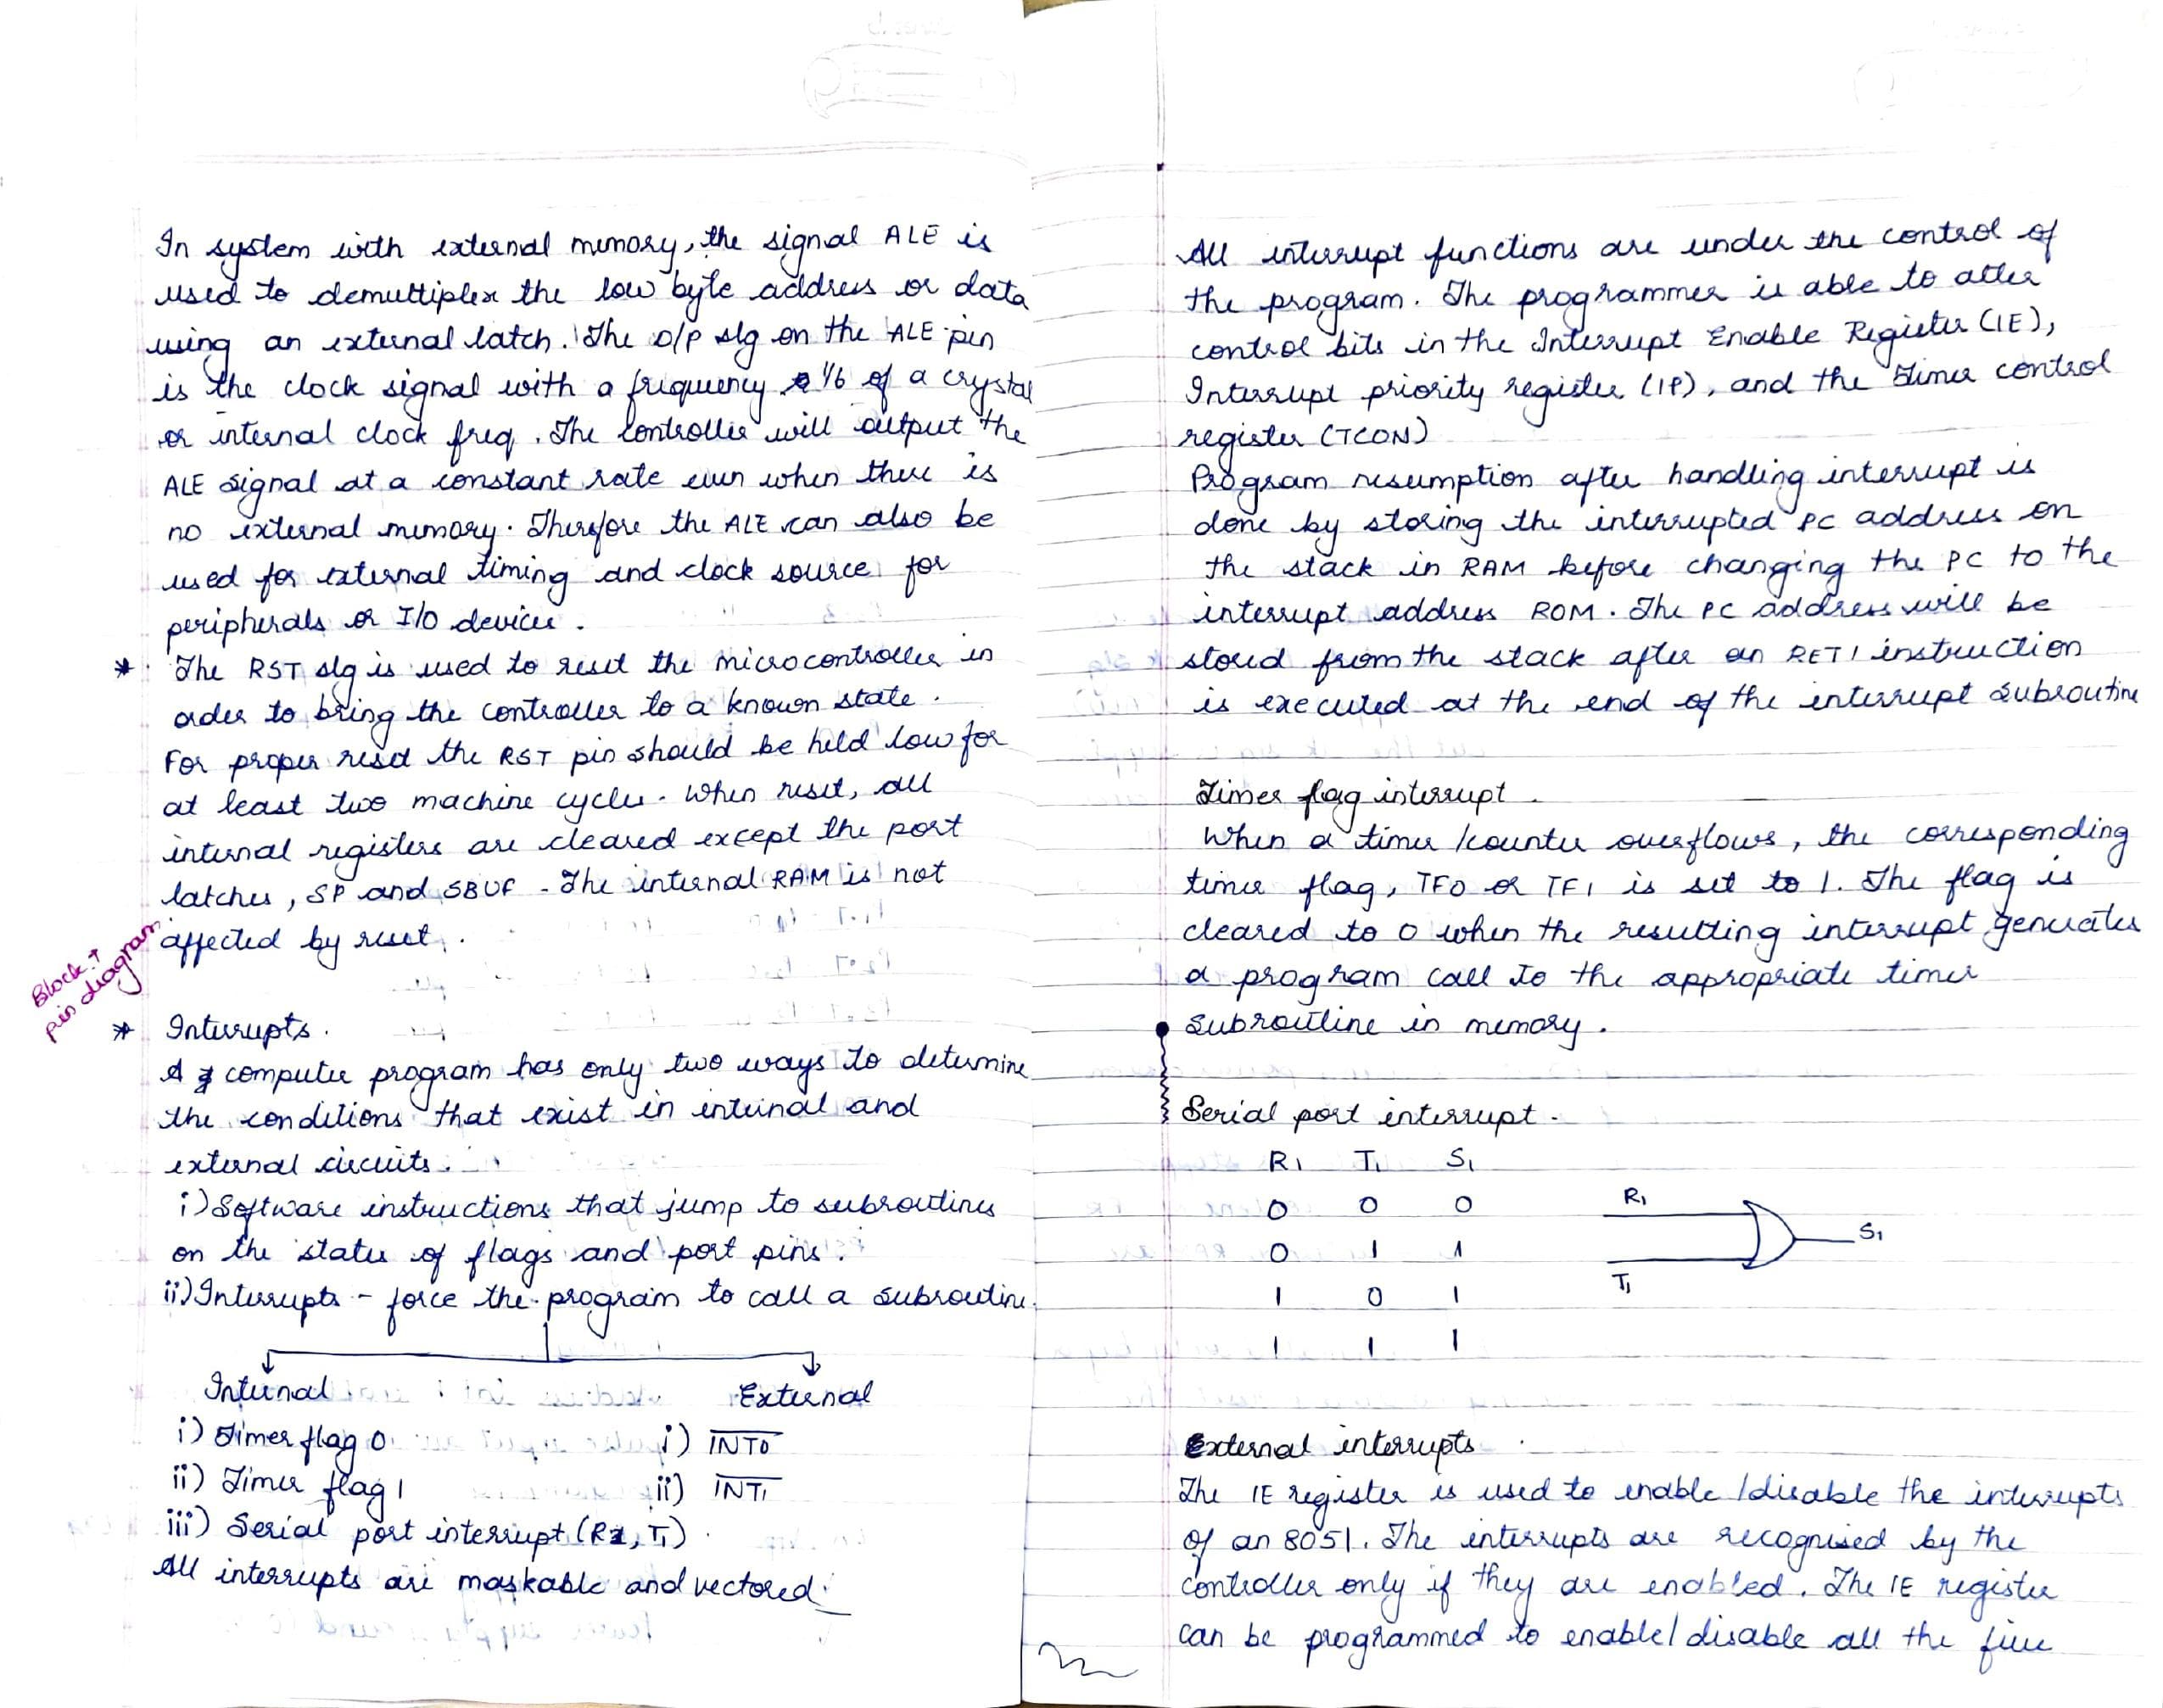 In system with external memory, the signal ALE is
used to demultiplex the low byte address or data
using an external latch. The o/p slg on the ALE pin
is the clock signal with a frequency 1/6 of a crystal
or internal clock freq. The controller will output the
ALE signal at a constant rate even when there is
no external memory. Therefore the ALE can also be
used for external timing and clock source for
peripherals or I/O devices.
* The RST slg is used to reset the microcontroller in
order to bring the controller to a known state.
For proper reset the RST pin should be held low for
at least two machine cycles. When reset, all
internal registers are cleared except the port
latches, SP and SBUF - The internal RAM is not
affected by reset.
Block ↑
pin diagram
* Interrupts.
A computer program has only two ways to determine
the conditions that exist in internal and
external circuits.
i) Software instructions that jump to subroutines
on the status of flags and port pins.
ii) Interrupts - force the program to call a subroutine.
Internal External
i) Timer flag 0 i) INT0
ii) Timer flag 1 ii) INT1
iii) Serial port interrupt (RI, TI)
All interrupts are maskable and vectored.
All interrupt functions are under the control of
the program. The programmer is able to alter
control bits in the Interrupt Enable Register (IE),
Interrupt priority register (IP), and the Timer control
register (TCON)
Program resumption after handling interrupt is
done by storing the interrupted PC address on
the stack in RAM before changing the PC to the
interrupt address ROM. The PC address will be
stored from the stack after an RETI instruction
is executed at the end of the interrupt subroutine
Timer flag interrupt.
When a timer/counter overflows, the corresponding
timer flag, TF0 or TF1 is set to 1. The flag is
cleared to 0 when the resulting interrupt generates
a program call to the appropriate timer
subroutine in memory.
Serial port interrupt.
RI TI SI
0 0 0
0 1 1
1 0 1
1 1 1
RI
SI
TI
External interrupts
The IE register is used to enable/disable the interrupts
of an 8051. The interrupts are recognised by the
controller only if they are enabled. The IE register
can be programmed to enable/disable all the five